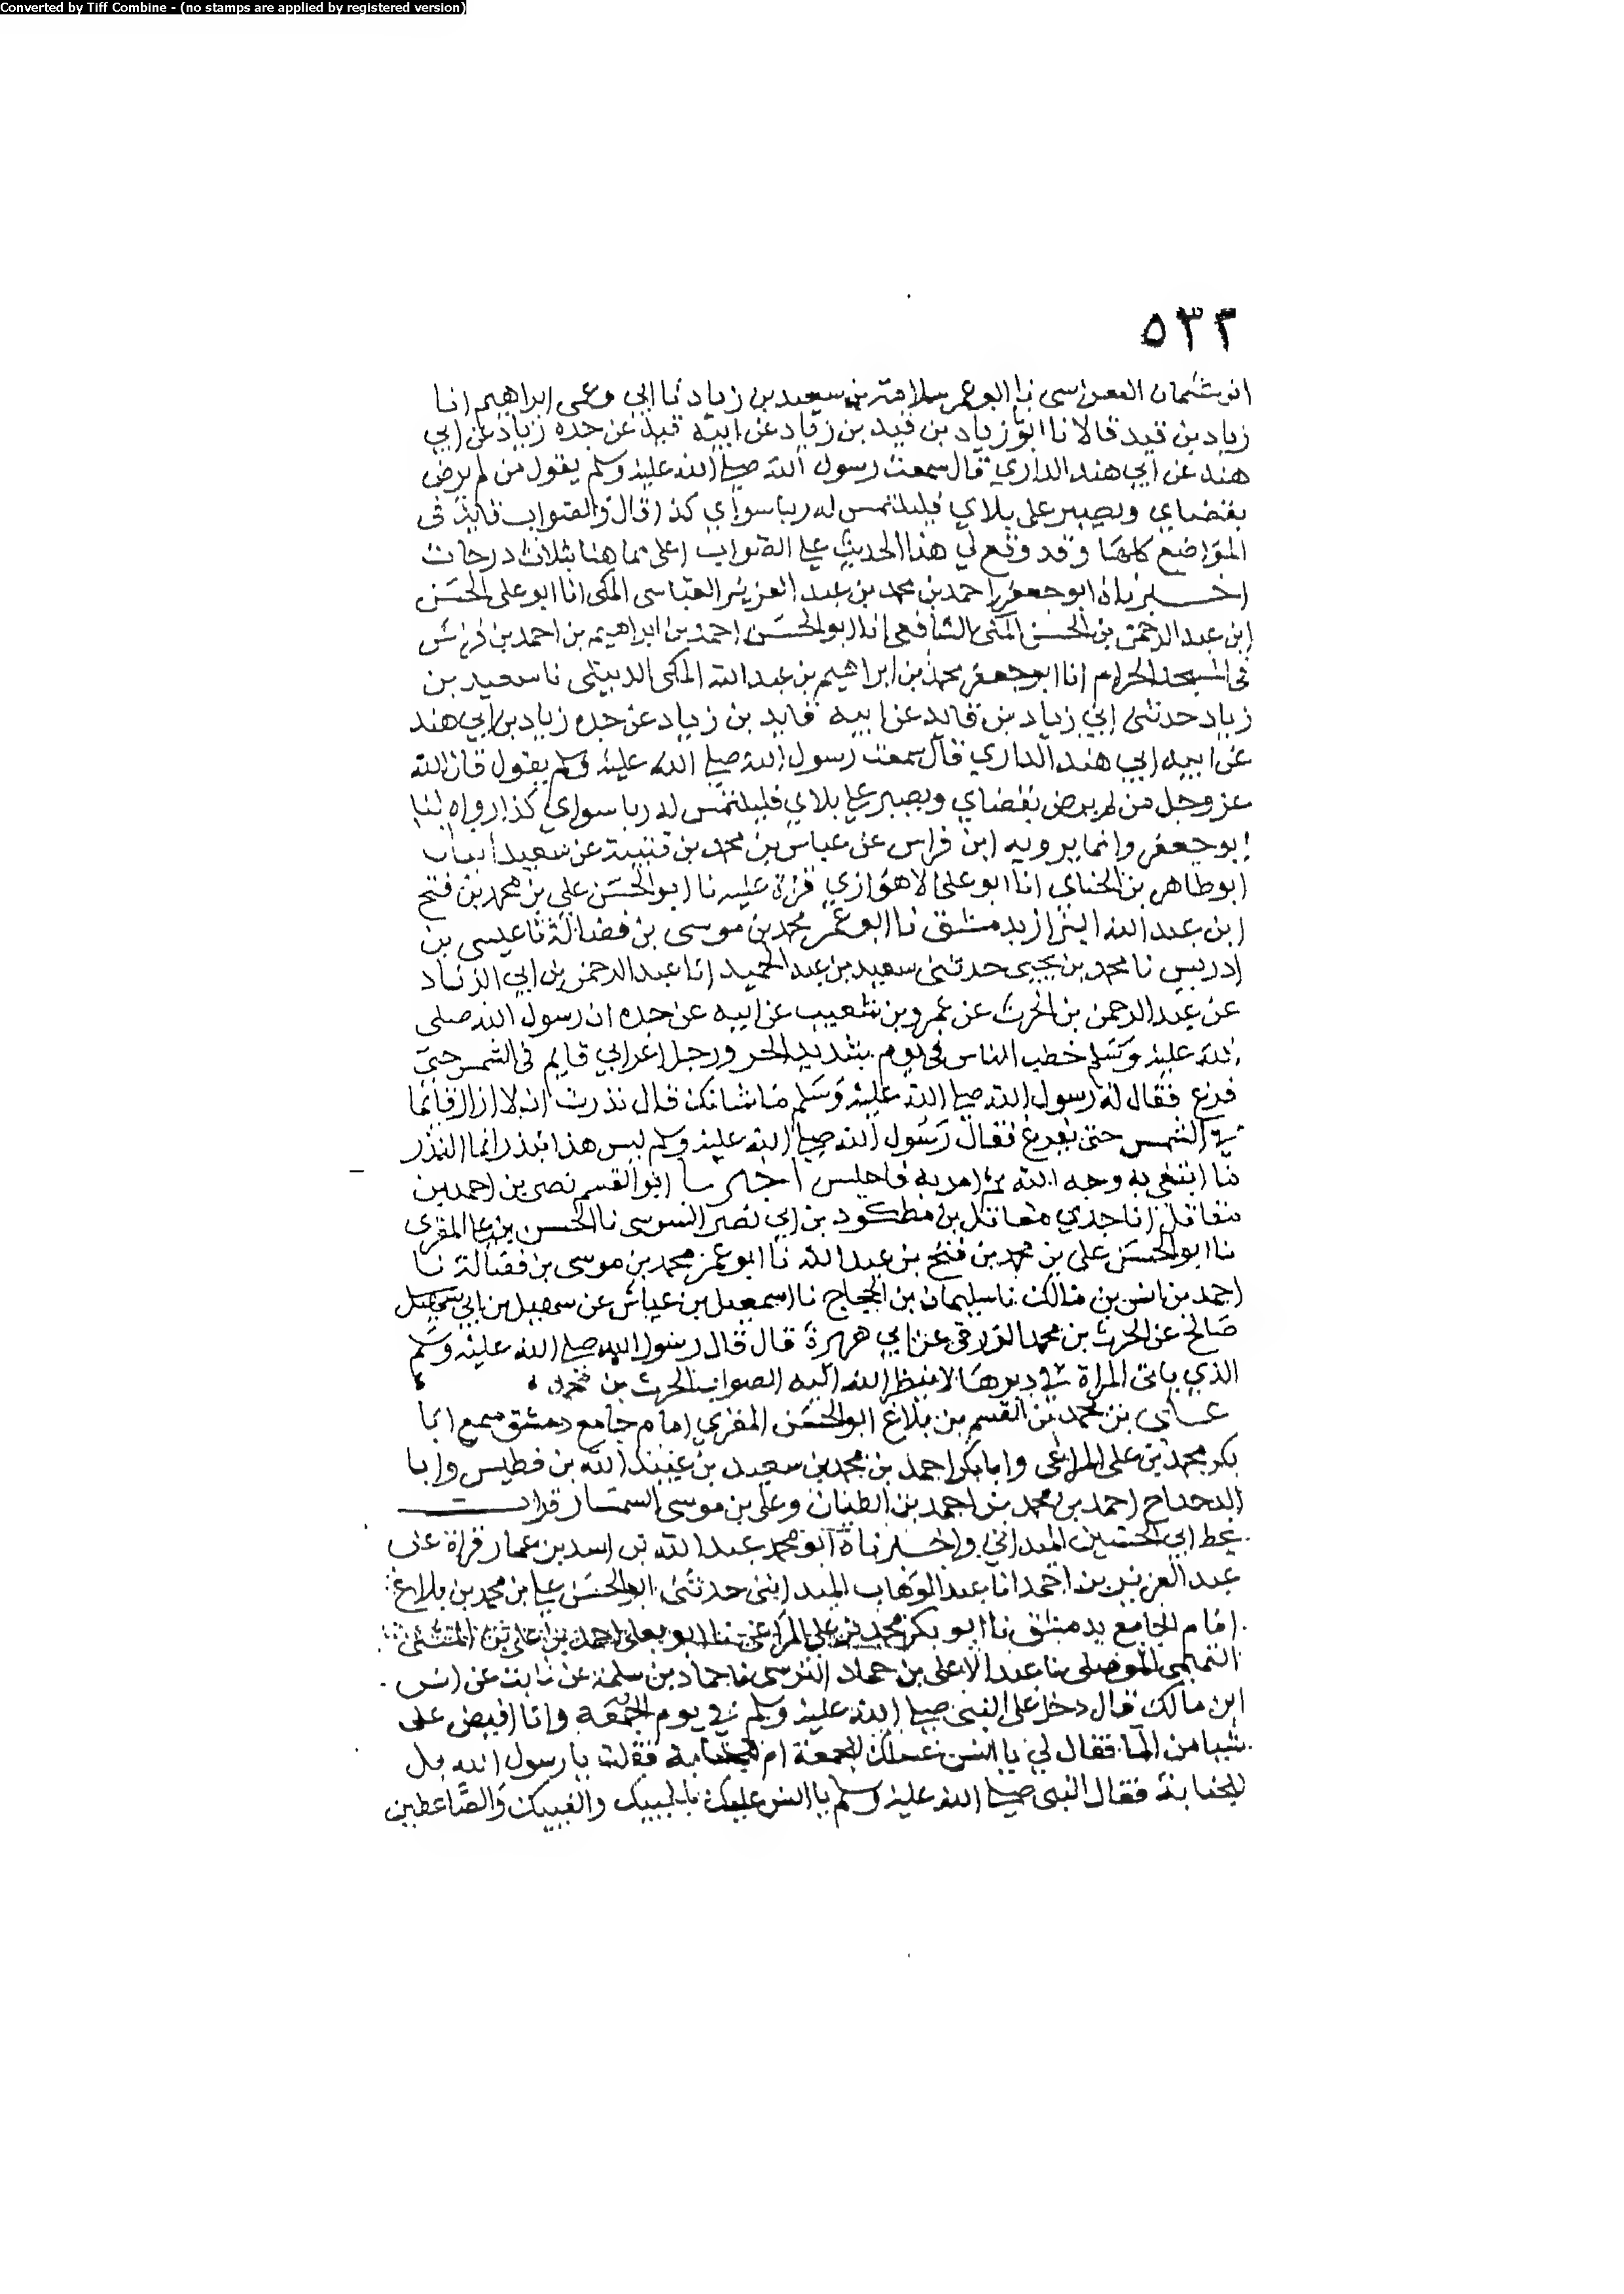 Converted by Tiff Combine - (no stamps are applied by registered version)
٥٣٣
سلامة بن سعيد بن زياد نا ابي وعمى ابراهيم انا
زياد بن قيد قالا نا ابو زياد بن قيد بن زياد عن ابيه قيد عن جده زياد عن ابي
هند عن ابي هند الداري قال سمعت رسول الله صلى الله عليه وسلم يقول من لم يرض
بقضاي ويصبر على بلاي فليلتمس له ربا سواي كذا قال والصواب فايد فى
المواضع كلها وقد وقع لي هذا الحديث على الصواب اعلى مما هنا بثلاث درجات
اخبرناه ابو جعفر احمد بن محمد بن عبد العزيز العباسى المكى انا ابو على الحسن
ابن عبد الرحمن بن الحسن المكى الشافعى انا ابو الحسن احمد بن ابراهيم بن احمد بن فراس
فى المسجد الحرام انا ابو جعفر محمد بن ابراهيم بن عبد الله المكى الديبلى نا سعيد بن
زياد حدثنى ابي زياد بن فايد عن ابيه فايد بن زياد عن جده زياد بن ابي هند
عن ابيه ابي هند الداري قال سمعت رسول الله صلى الله عليه وسلم يقول قال الله
عز وجل من لم يرض بقضاي ويصبر على بلاي فليلتمس له ربا سواي كذا رواه لنا
ابو جعفر وانما يرويه ابن فراس عن عباس بن محمد بن قتيبة عن سعيد انبانا
ابو طاهر بن الحناي انا ابو على الاهوازي قراة عليه نا ابو الحسن على بن محمد بن فتح
ابن عبد الله البزاز بدمشق نا ابو عمر محمد بن موسى بن فضالة نا عيسى بن
ادريس نا محمد بن يحيى حدثنى سعيد بن عبد الحميد انا عبد الرحمن بن ابي الزناد
عن عبد الرحمن بن الحرث عن عمرو بن شعيب عن ابيه عن جده ان رسول الله صلى
الله عليه وسلم خطب الناس فى يوم شديد الحر ورجل اعرابي قايم فى الشمس حتى
فرغ فقال له رسول الله صلى الله عليه وسلم ما شانك قال نذرت ان لا ازال قائما
في الشمس حتى يفرغ فقال رسول الله صلى الله عليه وسلم ليس هذا بنذر انما النذر
ما ابتغى به وجه الله ثم امر به فاجلس اخبرنا ابو القسم نصر بن احمد بن
مقاتل انا جدي مقاتل بن مطكود بن ابي نصر السوسى نا الحسن بن على المقرى
نا ابو الحسن على بن محمد بن فتح بن عبد الله نا ابو عمر محمد بن موسى بن فضالة نا
احمد بن انس بن مالك نا سليمان بن الحجاج نا اسمعيل بن عياش عن سهيل بن ابي
صالح عن الحرث بن محمد الزرقى عن ابي هريرة قال قال رسول الله صلى الله عليه وسلم
الذي ياتى المراة في دبرها لا ينظر الله اليه الصواب الحرث بن مخلد
على بن محمد بن القسم بن بلاغ ابو الحسن المقري امام جامع دمشق سمع ابا
بكر محمد بن على المراغى وابا بكر احمد بن محمد بن سعيد بن عبيد الله بن فطيس وابا
الدحداح احمد بن محمد بن احمد بن الطيان وعلى بن موسى السمسار قرات
بخط ابي الحسين الميداني واخبرناه ابو محمد عبد الله بن اسد بن عمار قراة عن
عبد العزيز بن احمد انا عبد الوهاب الميداني حدثنى ابو الحسن على بن محمد بن بلاغ
امام الجامع بدمشق نا ابو بكر محمد بن على المراغى نا ابو يعلى احمد بن على بن المثنى
التميمى الموصلى نا عبد الاعلى بن حماد النرسى نا حماد بن سلمة عن ثابت عن انس
ابن مالك قال دخل على النبى صلى الله عليه وسلم في يوم الجمعة وانا افيض على
شيا من الما فقال لي يا انس غسلك للجمعة ام للجنابة فقلت يا رسول الله بل
للجنابة فقال النبى صلى الله عليه وسلم يا انس عليك بالحبيك والفبيك والضاغطين